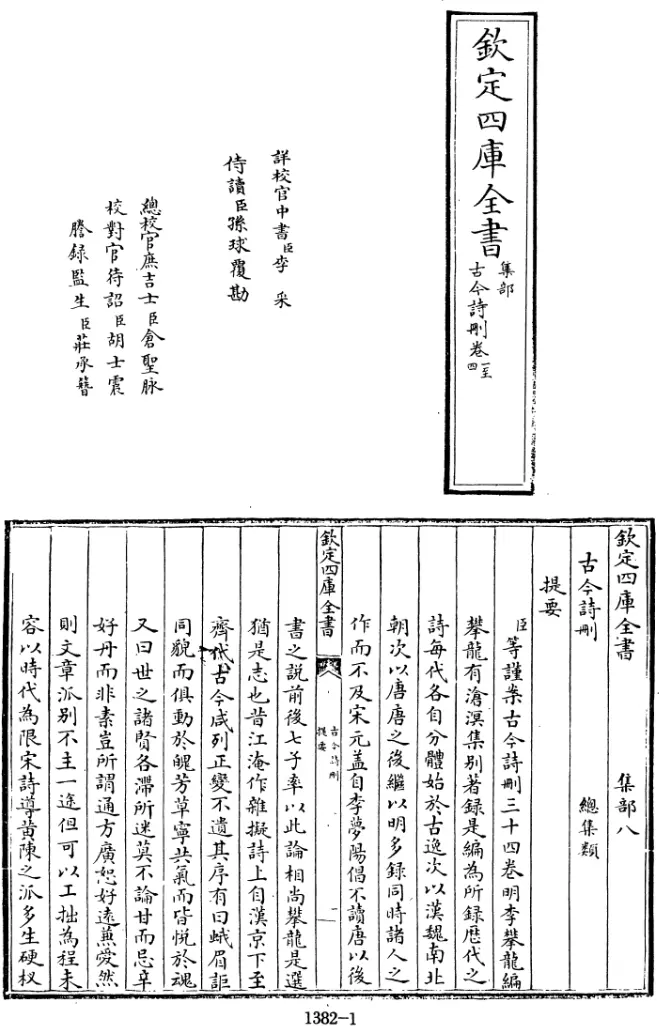 欽定四庫全書
集部
古今詩刪卷一至四
詳校官中書臣李采
侍讀臣孫球覆勘
總校官庶吉士臣倉聖脉
校對官待詔臣胡士震
謄録監生臣莊承籛
欽定四庫全書 集部八
古今詩刪 總集類
提要
臣等謹案古今詩刪三十四卷明李攀龍編
攀龍有滄溟集别著録是編為所録歴代之
詩每代各自分體始於古逸次以漢魏南北
朝次以唐唐之後繼以明多録同時諸人之
作而不及宋元盖自李夢陽倡不讀唐以後
欽定四庫全書
古今詩刪
提要
一
書之説前後七子率以此論相尚攀龍是選
猶是志也昔江淹作雜擬詩上自漢京下至
齊代古今咸列正變不遺其序有曰蛾眉詎
同貌而俱動於魄芳草寧共氣而皆悦於魂
又曰世之諸賢各滯所迷莫不論甘而忌辛
好丹而非素豈所謂通方廣恕好逺兼愛然
則文章派别不主一途但可以工拙為程未
容以時代為限宋詩導黄陳之派多生硬杈
1382-1